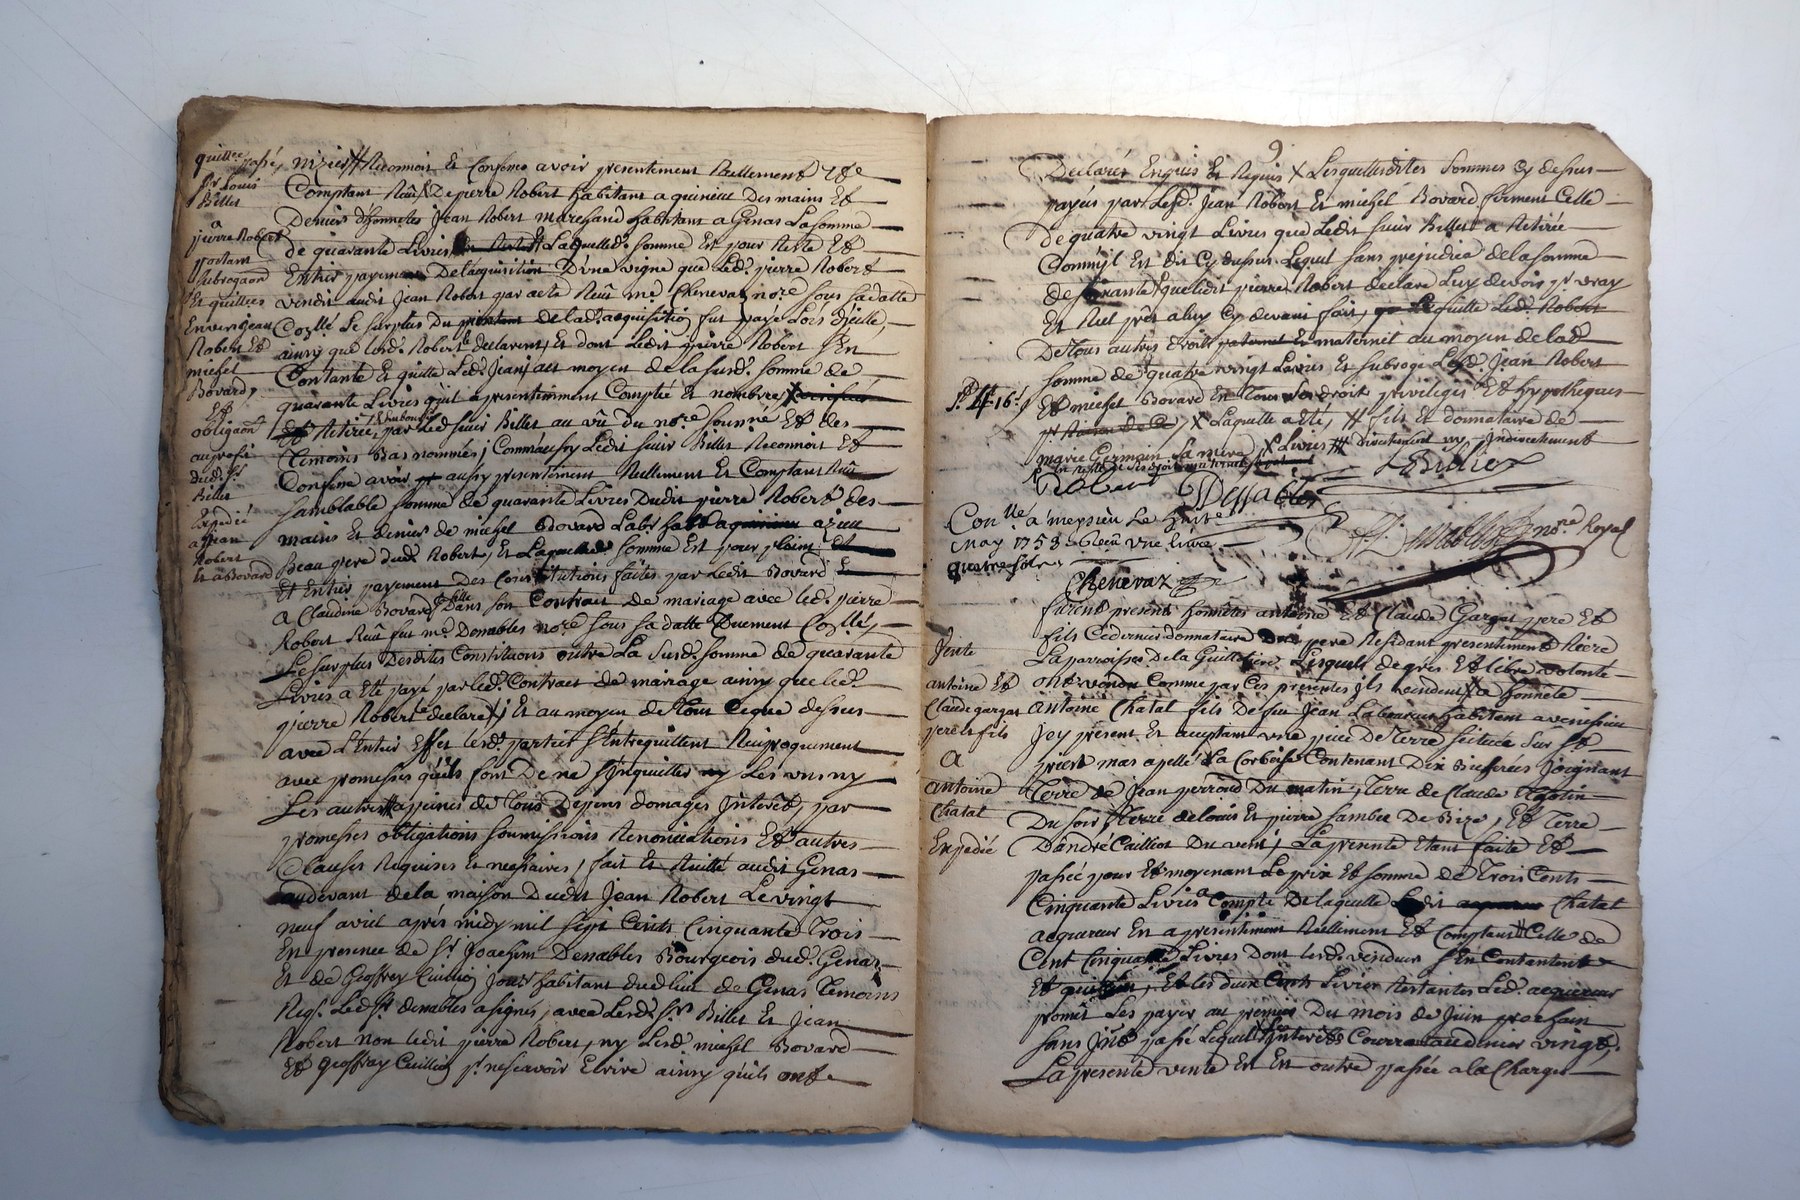 quittce passé,
Sr Louis
Billet
a
pierre Robert
portant
subrogaon
Et quittces
Envers jean
Robert Et
michel
Bovard,
Et
obligaon
au profit
dud. Sr
Billet
Expedié
a Jean
Robert
Et a Bovard
nizier # Reconnoit Et Confesse avoir presentement Reellement Et
Comptant Reçû De pierre Robert habitant a quinieu Des mains Et
Deniers d'honnettes jean Robert marchand habitant a Genas La somme
de quarante Livres Laquelled. somme Est pour Reste Et
Entier payement De l'acquisition D'une vigne que Led. pierre Robert
vendit audit Jean Robert par acte Reçû me. Chenevaz nore sous sa datte
Conllé Le surplus Du de lad. acquisition fut payé Lors d'jcelle,
ainsy que lesd. Robert declarent, Et dont Ledit pierre Robert s'En
Contante Et quitte Led. Jean, au moyen de la susd. somme de
quarante Livres qu'il a presentemment Comptée Et nombrée X
Et Retirée par Led sieur Billet au vû du nore soussné Et des
Temoins Bas nommés; Comm'aussy Ledit sieur Billet Reconnoit Et
Confesse avoir aussy presentement Reellement Et Comptant Reçû
semblable somme de quarante Livres Dudit pierre Robert des
mains Et deniers de michel Bovard Labr hab
Beau pere dud. Robert, Et Laquelled. somme Est pour
Et Entier payement Des Constitutions faites par Ledit Bovard
a Claudine Bovard sa fille Dans son Contrat de mariage avec led. pierre
Robert Reçû feu me. Denables nore sous sa datte Duement Conllé,
Le surplus Desdites Constitutions outre La susd. somme de quarante
Livres a Eté payé par led. Contract de mariage ainsy que led.
pierre Robert le declare X; Et au moyen de Tout Ceque dessus
avec L'Entier Effet lesd. parties s'Entrequittent Reciproquement
avec promesses qu'ils font De ne s'inquietter ny Les uns ny
Les autres # a peines de Tous Depens domages Jnterêts, par
promesses obligations soumissions Renonciations Et autres
Clauses Requises Et necessaires; fait Et Recitté audit Genas
audevant de la maison Dudit Jean Robert Le vingt
neuf avril après midy mil sept Cents Cinquante Trois
En presence de Sr Joachim Denables Bourgeois dud. Genas
Et de Geoffrey habitant dud lieu de Genas Temoins
Req. Led Sr denables a signé, avec Lesd. Srs Billet Et jean
Robert non ledit pierre Robert, ny Led michel Bovard
Et Geoffray pr ne sçavoir Ecrire ainsy qu'ils ont
9
Declarés Enquis Et Requis X Lesquellesdites sommes cy dessus
payées par Lesd. Jean Robert Et michel Bovard forment Celle
De quatre vingt Livres que Ledit sieur Billet a Retirée
Comm'il Est dit Cy dessus Le quel sans prejudice de la somme
de que ledit pierre Robert declare Luy devoir pr vray
Et Reel prêt a luy Cy devant fait, quitte Led. Robert
De Tous autres droits paternel Et maternel au moyen de lad
somme de quatre vingt Livres Et subroge Lesd. Jean Robert
Et michel Bovard En Tous ses droits privileges Et hypotheques
X Laquelle a Eté, # fils Et donnataire de
marie Germain sa mere, X Livres ## directement ny Indirectement
Robert Denables LBillet
Conllé a meyzieu Le huit
may 1753 Reçû une livre
quatre sols
Chenevaz
nore Royal
Vente
antoine Et
Claude gargat
pere Et fils
A
antoine
Chatal
Expedié
furent presents honnêtes antoine Et Claude Gargat pere Et
fils Cedernier donnataire pere Residant presentement Riere
La parroisse De la Guillotiere, Lesquels de gres Et libre volonté
ont vendu Comme par Ces presentes jls vendent a honnête
Antoine Chatal fils De feu Jean Laboureur habitant a venissieu
Jcy present Et acceptant une piece De Terre scituée Sur St
priest mas apellé La Corbeise Contenant Dix Bicherées Joignant
Terre de Jean perroud Du matin, Terre de Claude
Du soir, # Terre de Louis Et pierre sambe De Bize, Et Terre
D'andré Cailliot Du vent, La presente Etant faite Et
passée pour Et moyenant Le prix Et somme de Trois Cents
Cinquante Livres a Compte De laquelle Ledit Chatal
acquereur En a presentement Reellement Et Comptant # Celle de
Cent Cinquante Livres Dont lesd. vendeurs s'En Contentent
Et quittent, Et les deux Cents Livres Restantes Led. acquereur
promêt Les payer au premier Du mois de Juin prochain
sans Jnt. passé Lequel Les Jnterêts Courront au denier vingt;
La presente vente Est En outre passée a la Charge